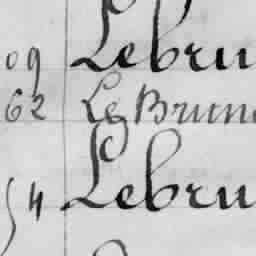 09 Lebru
62 Le Brun
54 Lebru